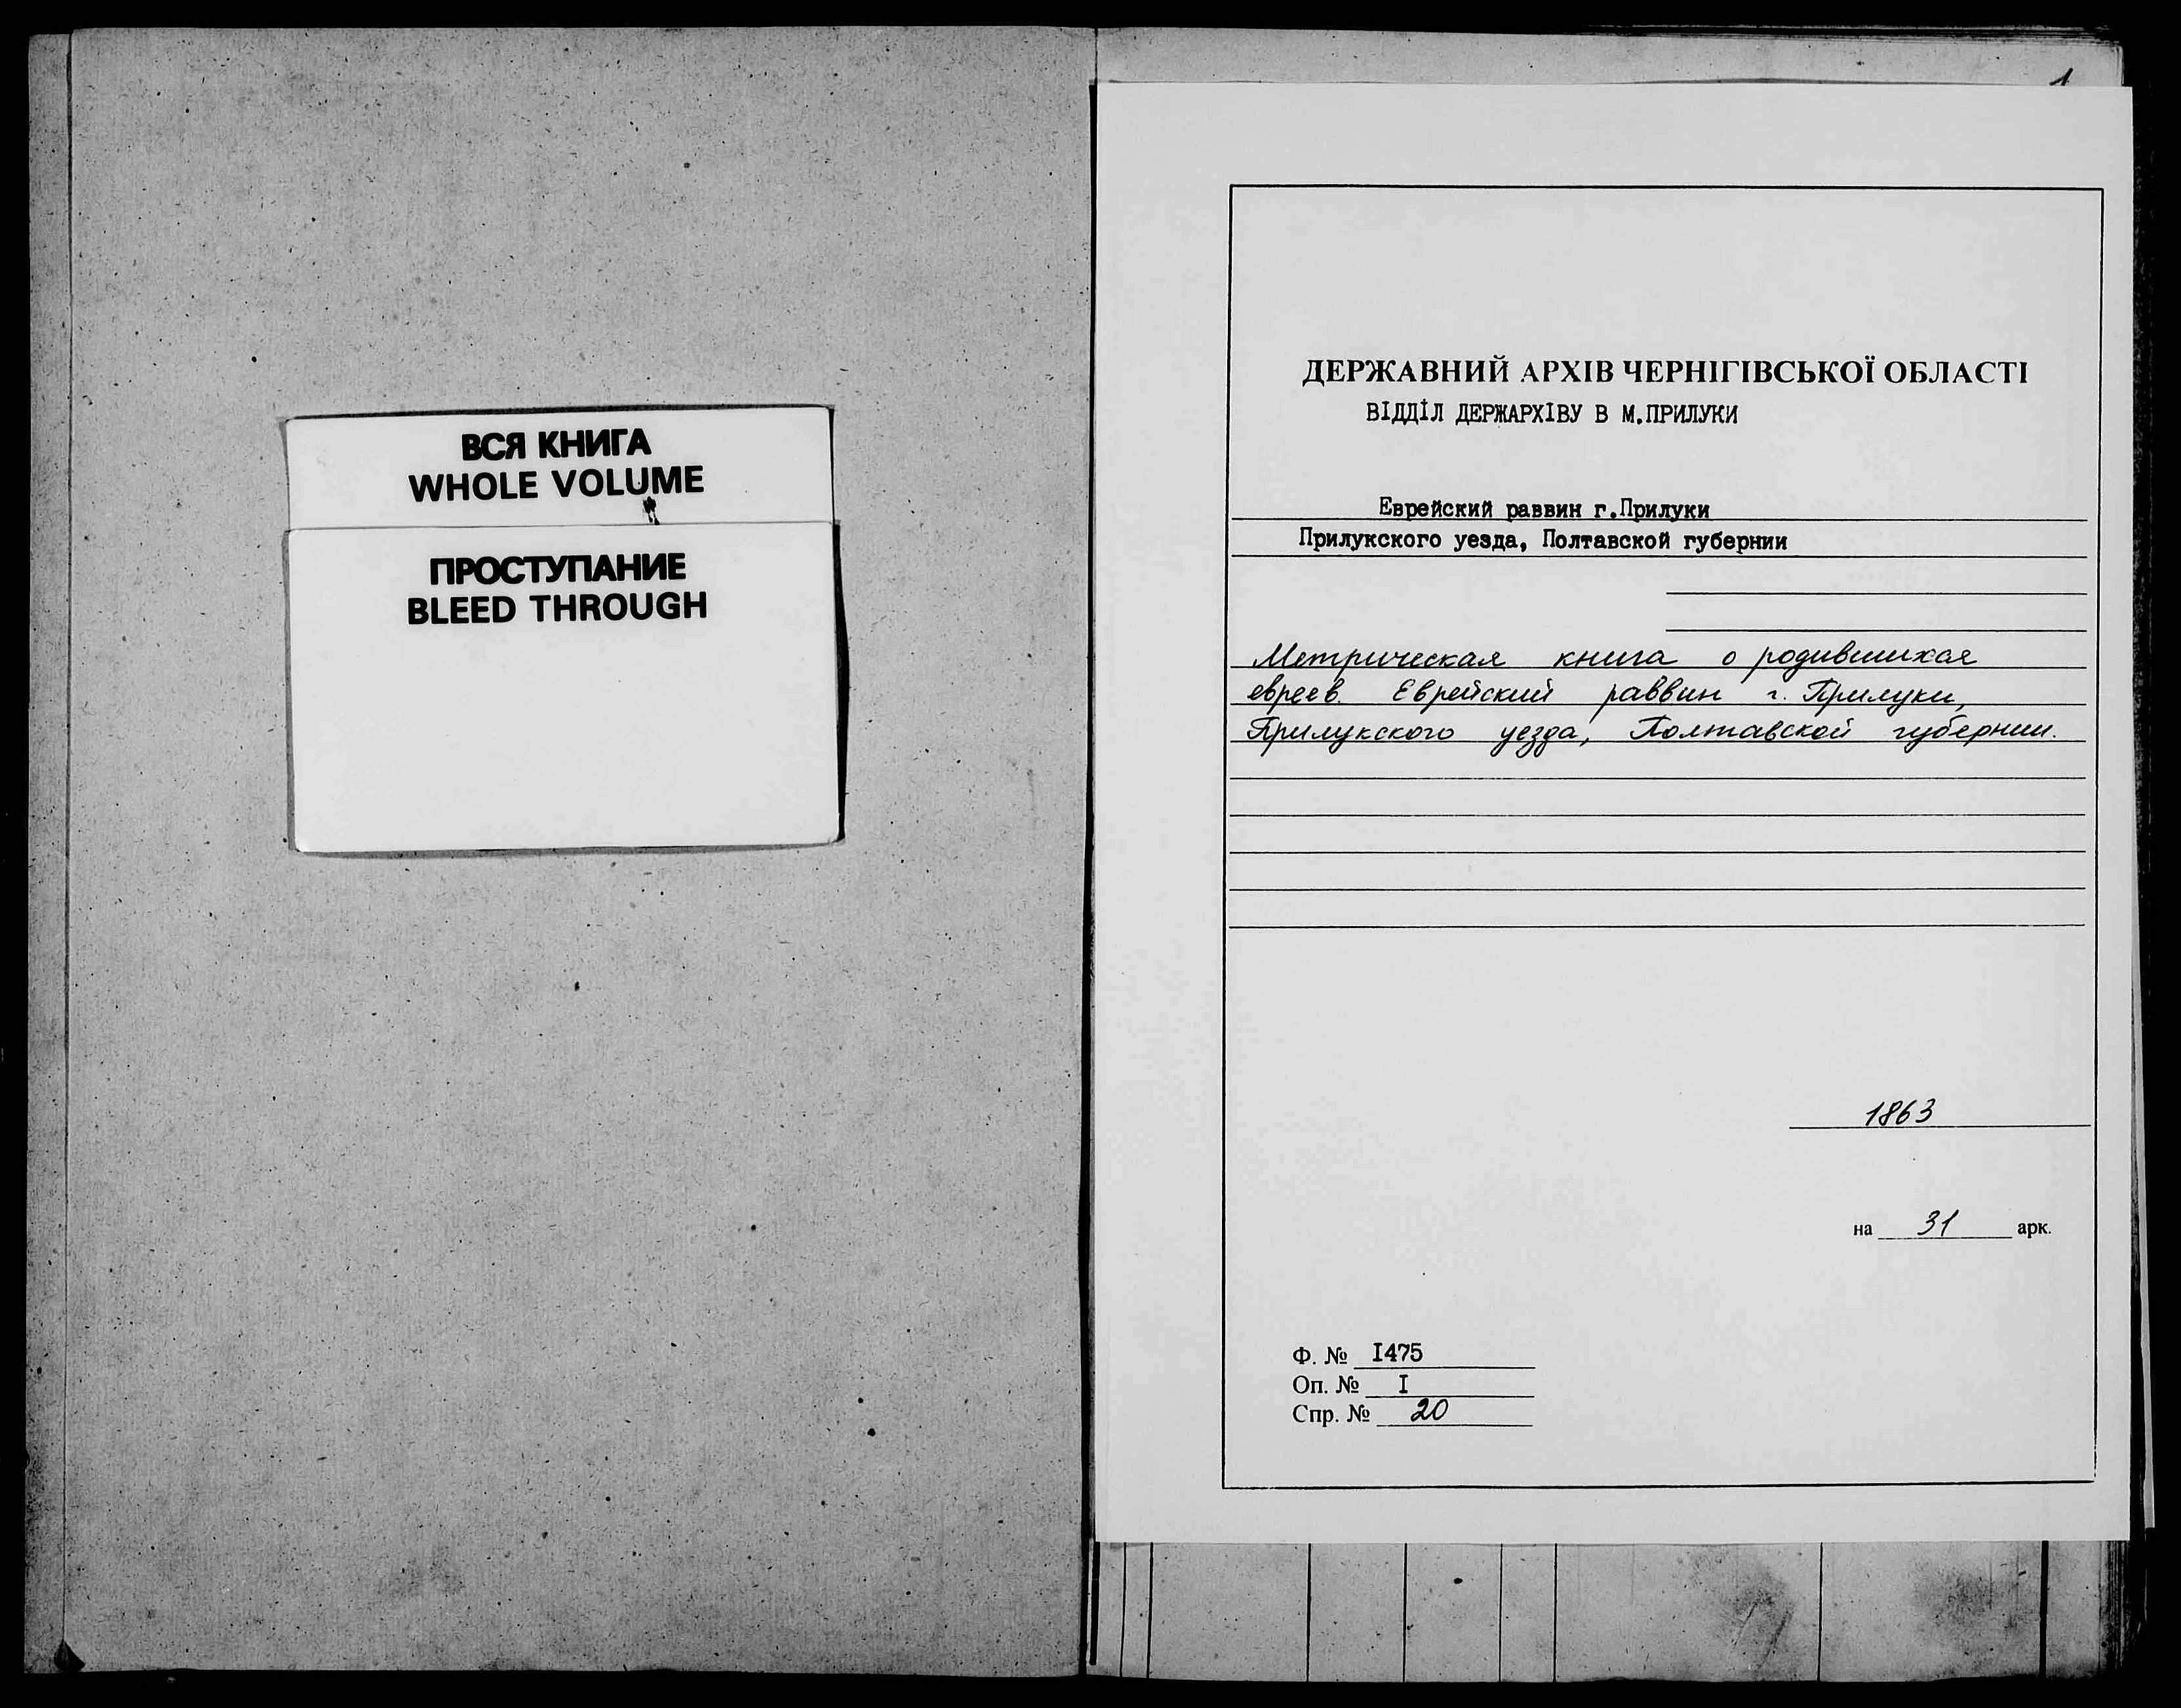 ВСЯ КНИГА
WHOLE VOLUME
ПРОСТУПАНИЕ
BLEED THROUGH
1
ДЕРЖАВНИЙ АРХІВ ЧЕРНІГІВСЬКОЇ ОБЛАСТІ
ВІДДІЛ ДЕРЖАРХІВУ В М.ПРИЛУКИ
Еврейский раввин г.Прилуки
Прилукского уезда, Полтавской губернии
Метрическая книга о родившихся
евреев. Еврейский раввин г. Прилуки,
Прилукского уезда, Полтавской губернии.
1863
на 31 арк.
Ф. № I475
Оп. № I
Спр. № 20